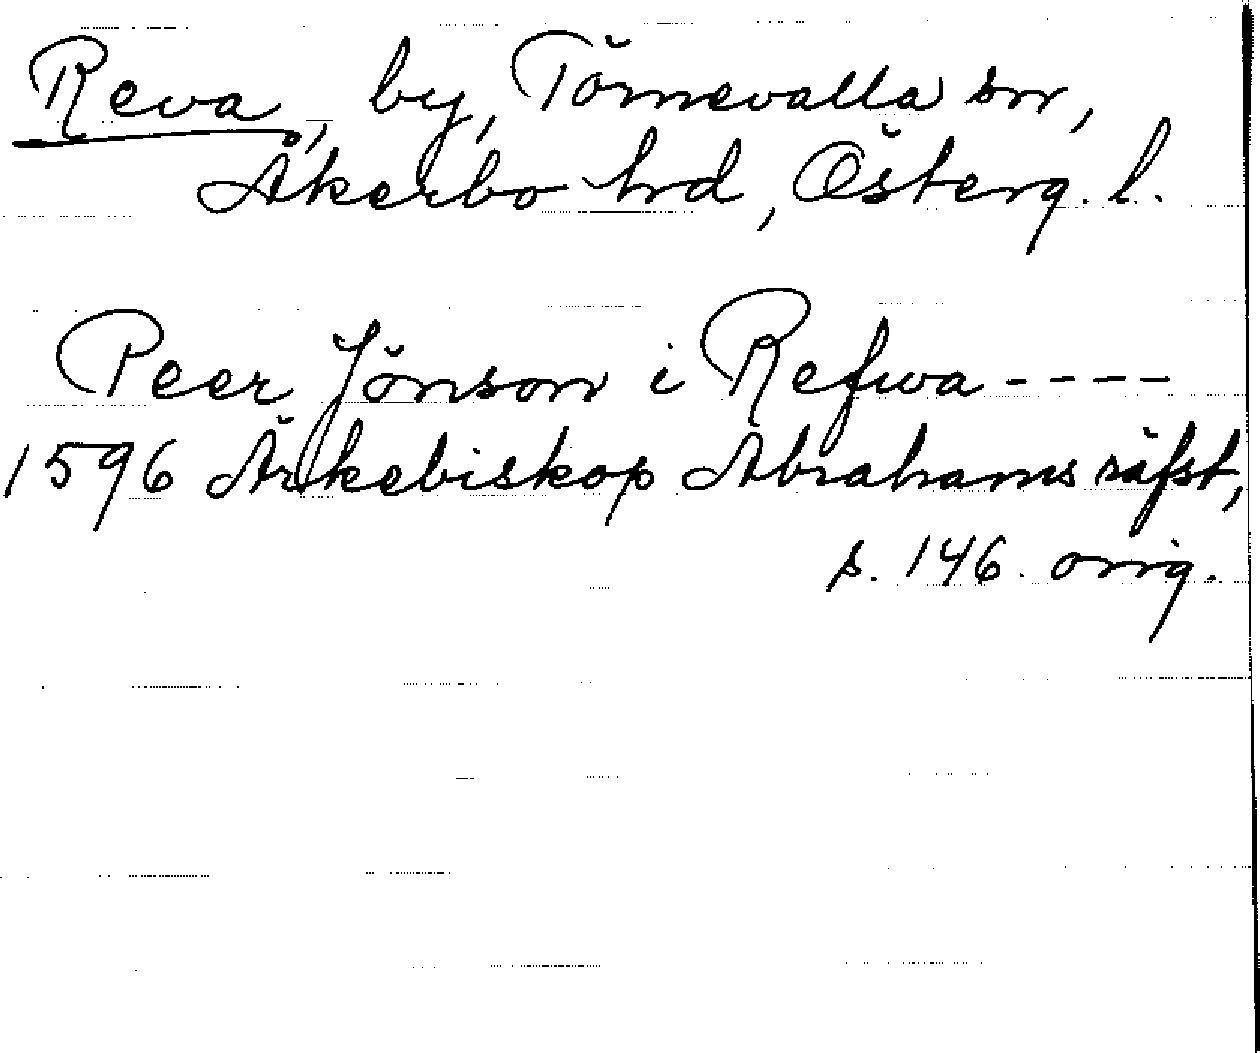 Reva, by, Törnevalla sn,
Åkerbo hrd, Österg. l.
Peer Jönson i Refwa ----
1596 Ärkebiskop Abrahams räfst,
s. 146. orig.